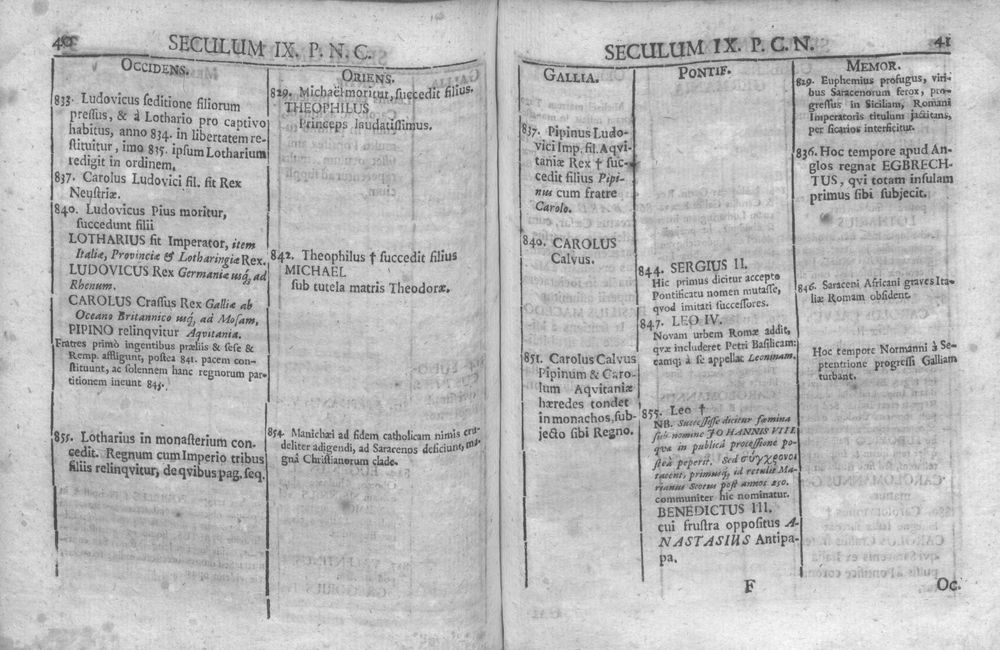 40
SECULUM IX. P. N. C.
OCCIDENS.
833. Ludovicus seditione filiorum
pressus, & à Lothario pro captivo
habitus, anno 834. in libertatem re-
stituitur, imo 835. ipsum Lotharium
redigit in ordinem.
837. Carolus Ludovici fil. fit Rex
Neustriæ.
840. Ludovicus Pius moritur,
succedunt filii
LOTHARIUS fit Imperator, item
Italiæ, Provinciæ & Lotharingiæ Rex.
LUDOVICUS Rex Germaniæ usq; ad
Rhenum.
CAROLUS Crassus Rex Galliæ ab
Oceano Britannico usq; ad Mosam,
PIPINO relinqvitur Aqvitania.
Fratres primò ingentibus præliis & sese &
Remp. affligunt, postea 841. pacem con-
stituunt, ac solennem hanc regnorum par-
titionem ineunt 843.
855. Lotharius in monasterium con-
cedit. Regnum cum Imperio tribus
filiis relinqvitur, de qvibus pag. seq.
ORIENS.
829. Michaël moritur, succedit filius.
THEOPHILUS
Princeps laudatissimus.
842. Theophilus † succedit filius
MICHAEL
sub tutela matris Theodoræ.
854. Manichæi ad fidem catholicam nimis cru-
deliter adigendi, ad Saracenos deficiunt, ma-
gnâ Christianorum clade.
SECULUM IX. P. C. N.
41
GALLIA.
837. Pipinus Ludo-
vici Imp. fil. Aqvi-
taniæ Rex † suc-
cedit filius Pipi-
nus cum fratre
Carolo.
840. CAROLUS
Calvus.
851. Carolus Calvus
Pipinum & Caro-
lum Aqvitaniæ
hæredes tondet
in monachos, sub-
jecto sibi Regno.
PONTIF.
844. SERGIUS II.
Hic primus dicitur accepto
Pontificatu nomen mutasse,
qvod imitati successores.
847. LEO IV.
Novam urbem Romæ addit,
qvæ includeret Petri Basilicam:
eamq; à se appellat Leoninam.
855. Leo †
NB. Successisse dicitur fœmina
sub nomine JOHANNIS VIII.
qvæ in publicâ processione po-
steà peperit. Sed σύγχρονοι
tacent, primusq; id retulit Ma-
rianus Scotus post annos 250.
communiter hic nominatur.
BENEDICTUS III.
cui frustra oppositus A-
NASTASIUS Antipa-
pa.
MEMOR.
829. Euphemius profugus, viri-
bus Saracenorum ferox, pro-
gressus in Siciliam, Romani
Imperatoris titulum jactitans,
per sicarios interficitur.
836. Hoc tempore apud An-
glos regnat EGBRECH-
TUS, qvi totam insulam
primus sibi subjecit.
846. Saraceni Africani graves Ita-
liæ Romam obsident.
Hoc tempore Normanni à Se-
ptentrione progressi Galliam
turbant.
F
Oc.